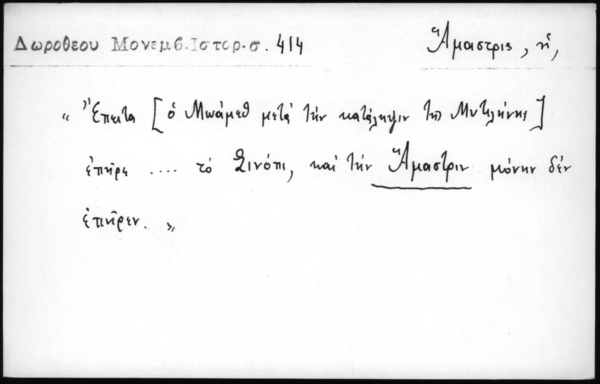 Δωροθεου Μονεμβ.Ιστορ.σ. 414
Ἄμαστρις, ἡ,
« Ἔπειτα [ὁ Μωάμεθ μετά τήν κατάληψιν τῆς Μυτιλήνης]
ἐπῆρε .... τό Σινόπι, καί τήν Ἄμαστριν μόνην δέν
ἐπῆρεν. »